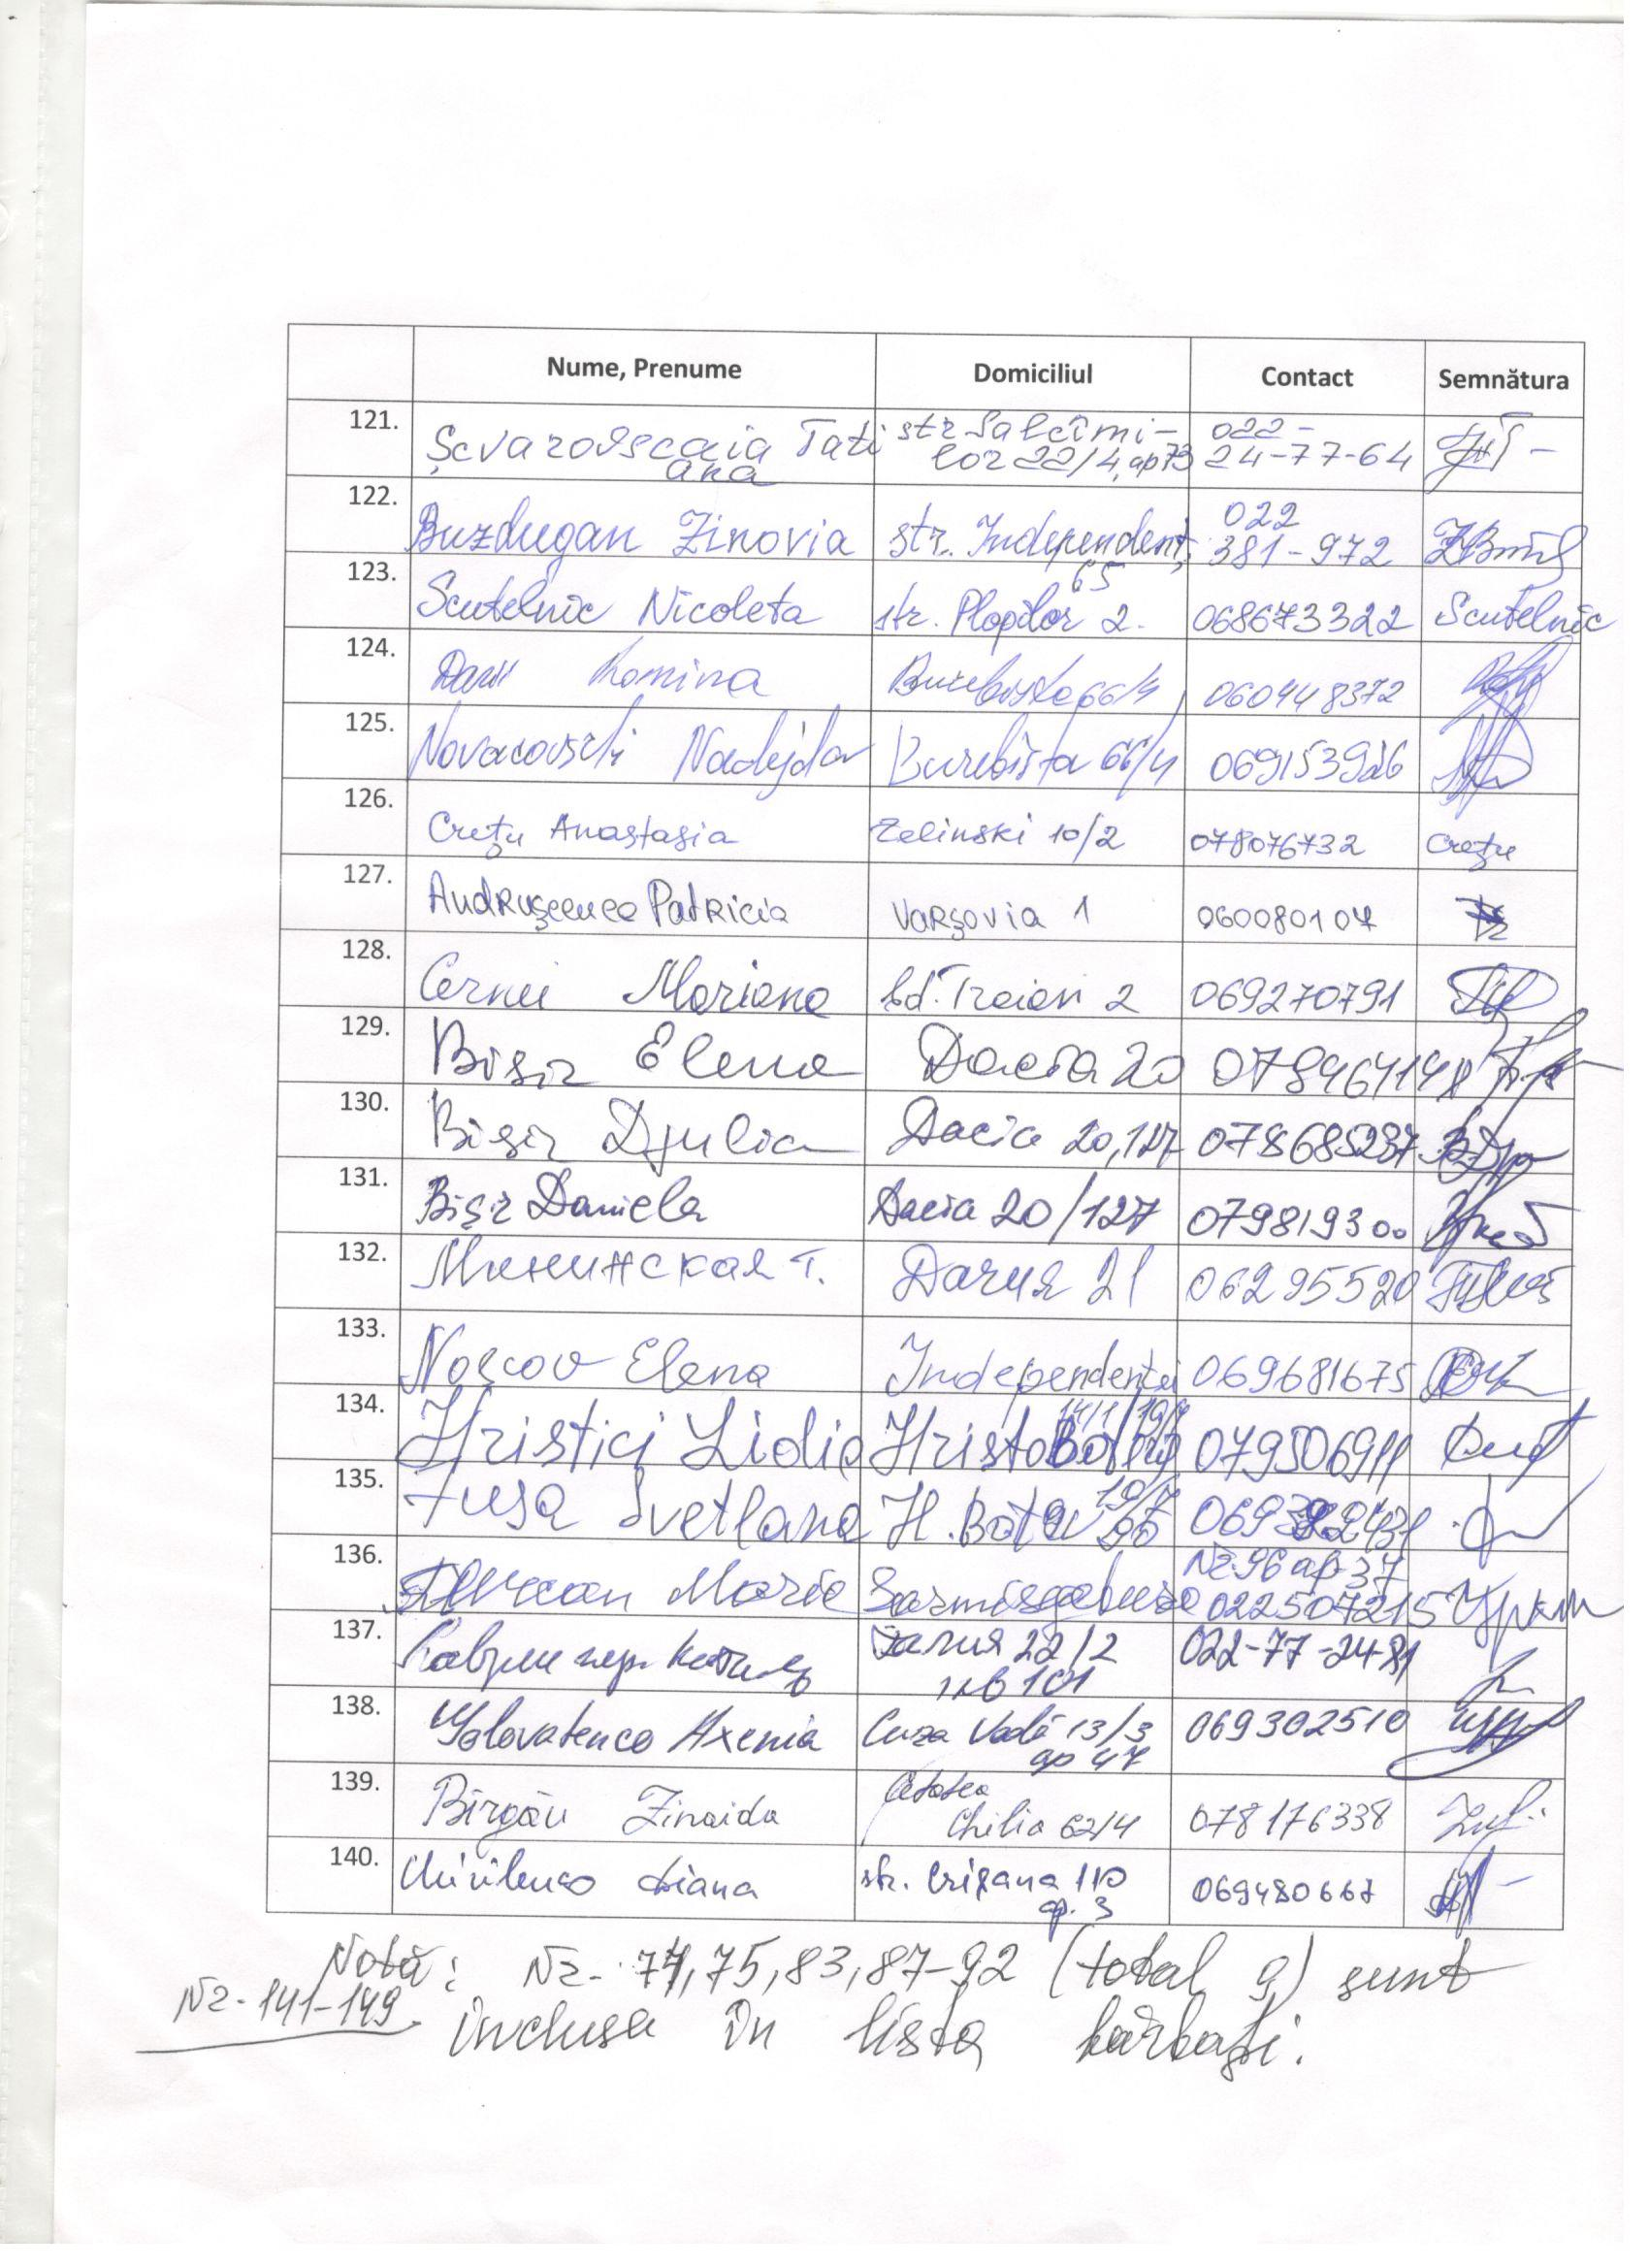 Nume, Prenume Domiciliul Contact Semnătura
121. Șcvarovscaia Tati str Salcîmi- 022-
ana lor 22/4, ap 73 24-77-64
122. Buzdugan Zinovia str. Independenț. 022
65 381-972
123. Scutelnic Nicoleta str. Plopilor 2. 068673322 Scutelnic
124. Darii Romina Burebista 66/4 060448372
125. Novacovschi Nadejda Burebista 66/4
126. Crețu Anastasia Zelinski 10/2 078076732 Crețu
127. Andrușcenco Patricia Varșovia 1 060080107
128. Cernei Mariana bd. Traian 2 069270791
129. Bișir Elena Dacia 20
130. Bișir Djulia Dacia 20,127
131. Bișir Daniela Dacia 20/127 079819300
132. Мининская Т. Дачия 21 06295520
133. Noscov Elena Independenței 069681675
14/1
134. Hristici Lidia Hristo 079506911
19/7
135. Svetlana H. Botev
136. Maria Nr. 96 ap 37
022507215
137. Дачия 22/2 022-77-24-81
кв 101
138. Axenia Cuza Vodă 13/3 069302510
ap 47
139. Bîrgău Zinaida Cetatea
Chilia 62/4 078176338
140. Chirilenco Diana str. Crișana 110 069480667
ap. 3
Notă: Nr. 74, 75, 83, 87-92 (total 9) sunt
Nr. 141-149. inclusa în lista bărbați.